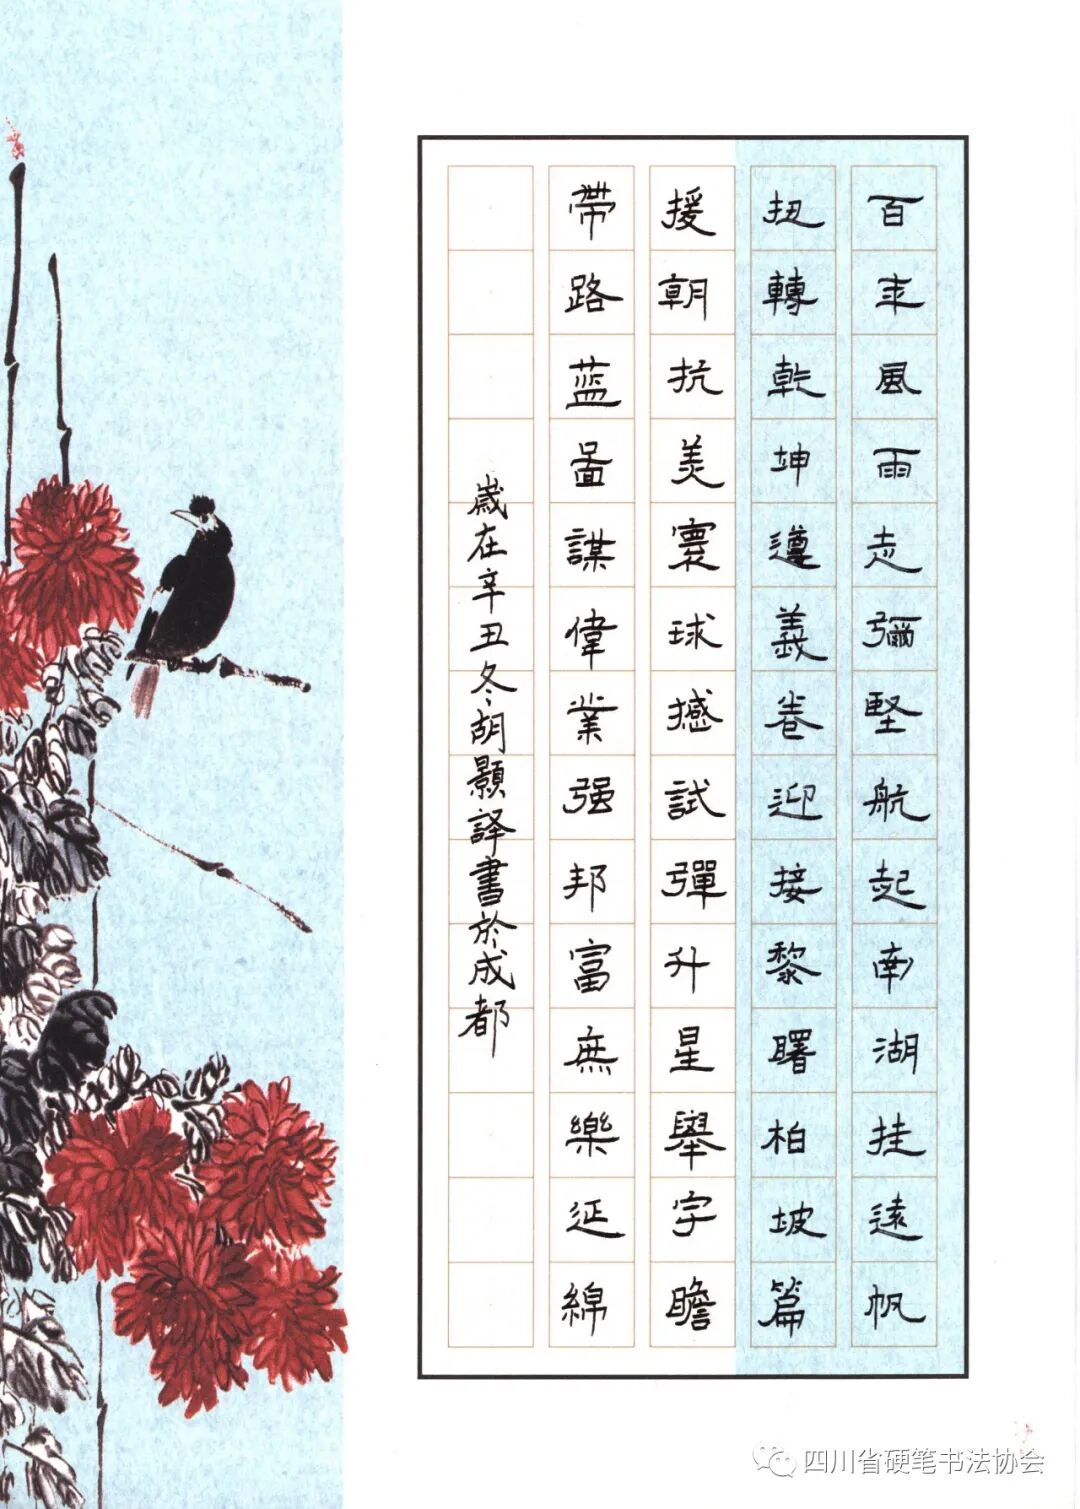 百年風雨走彌堅航起南湖挂遠帆
扭轉乾坤遵義卷迎接黎曙柏坡篇
援朝抗美寰球撼試彈升星舉宇瞻
帶路蓝啚謀偉業强邦富庶樂延綿
歲在辛丑冬胡顥譯書於成都
四川省硬笔书法协会